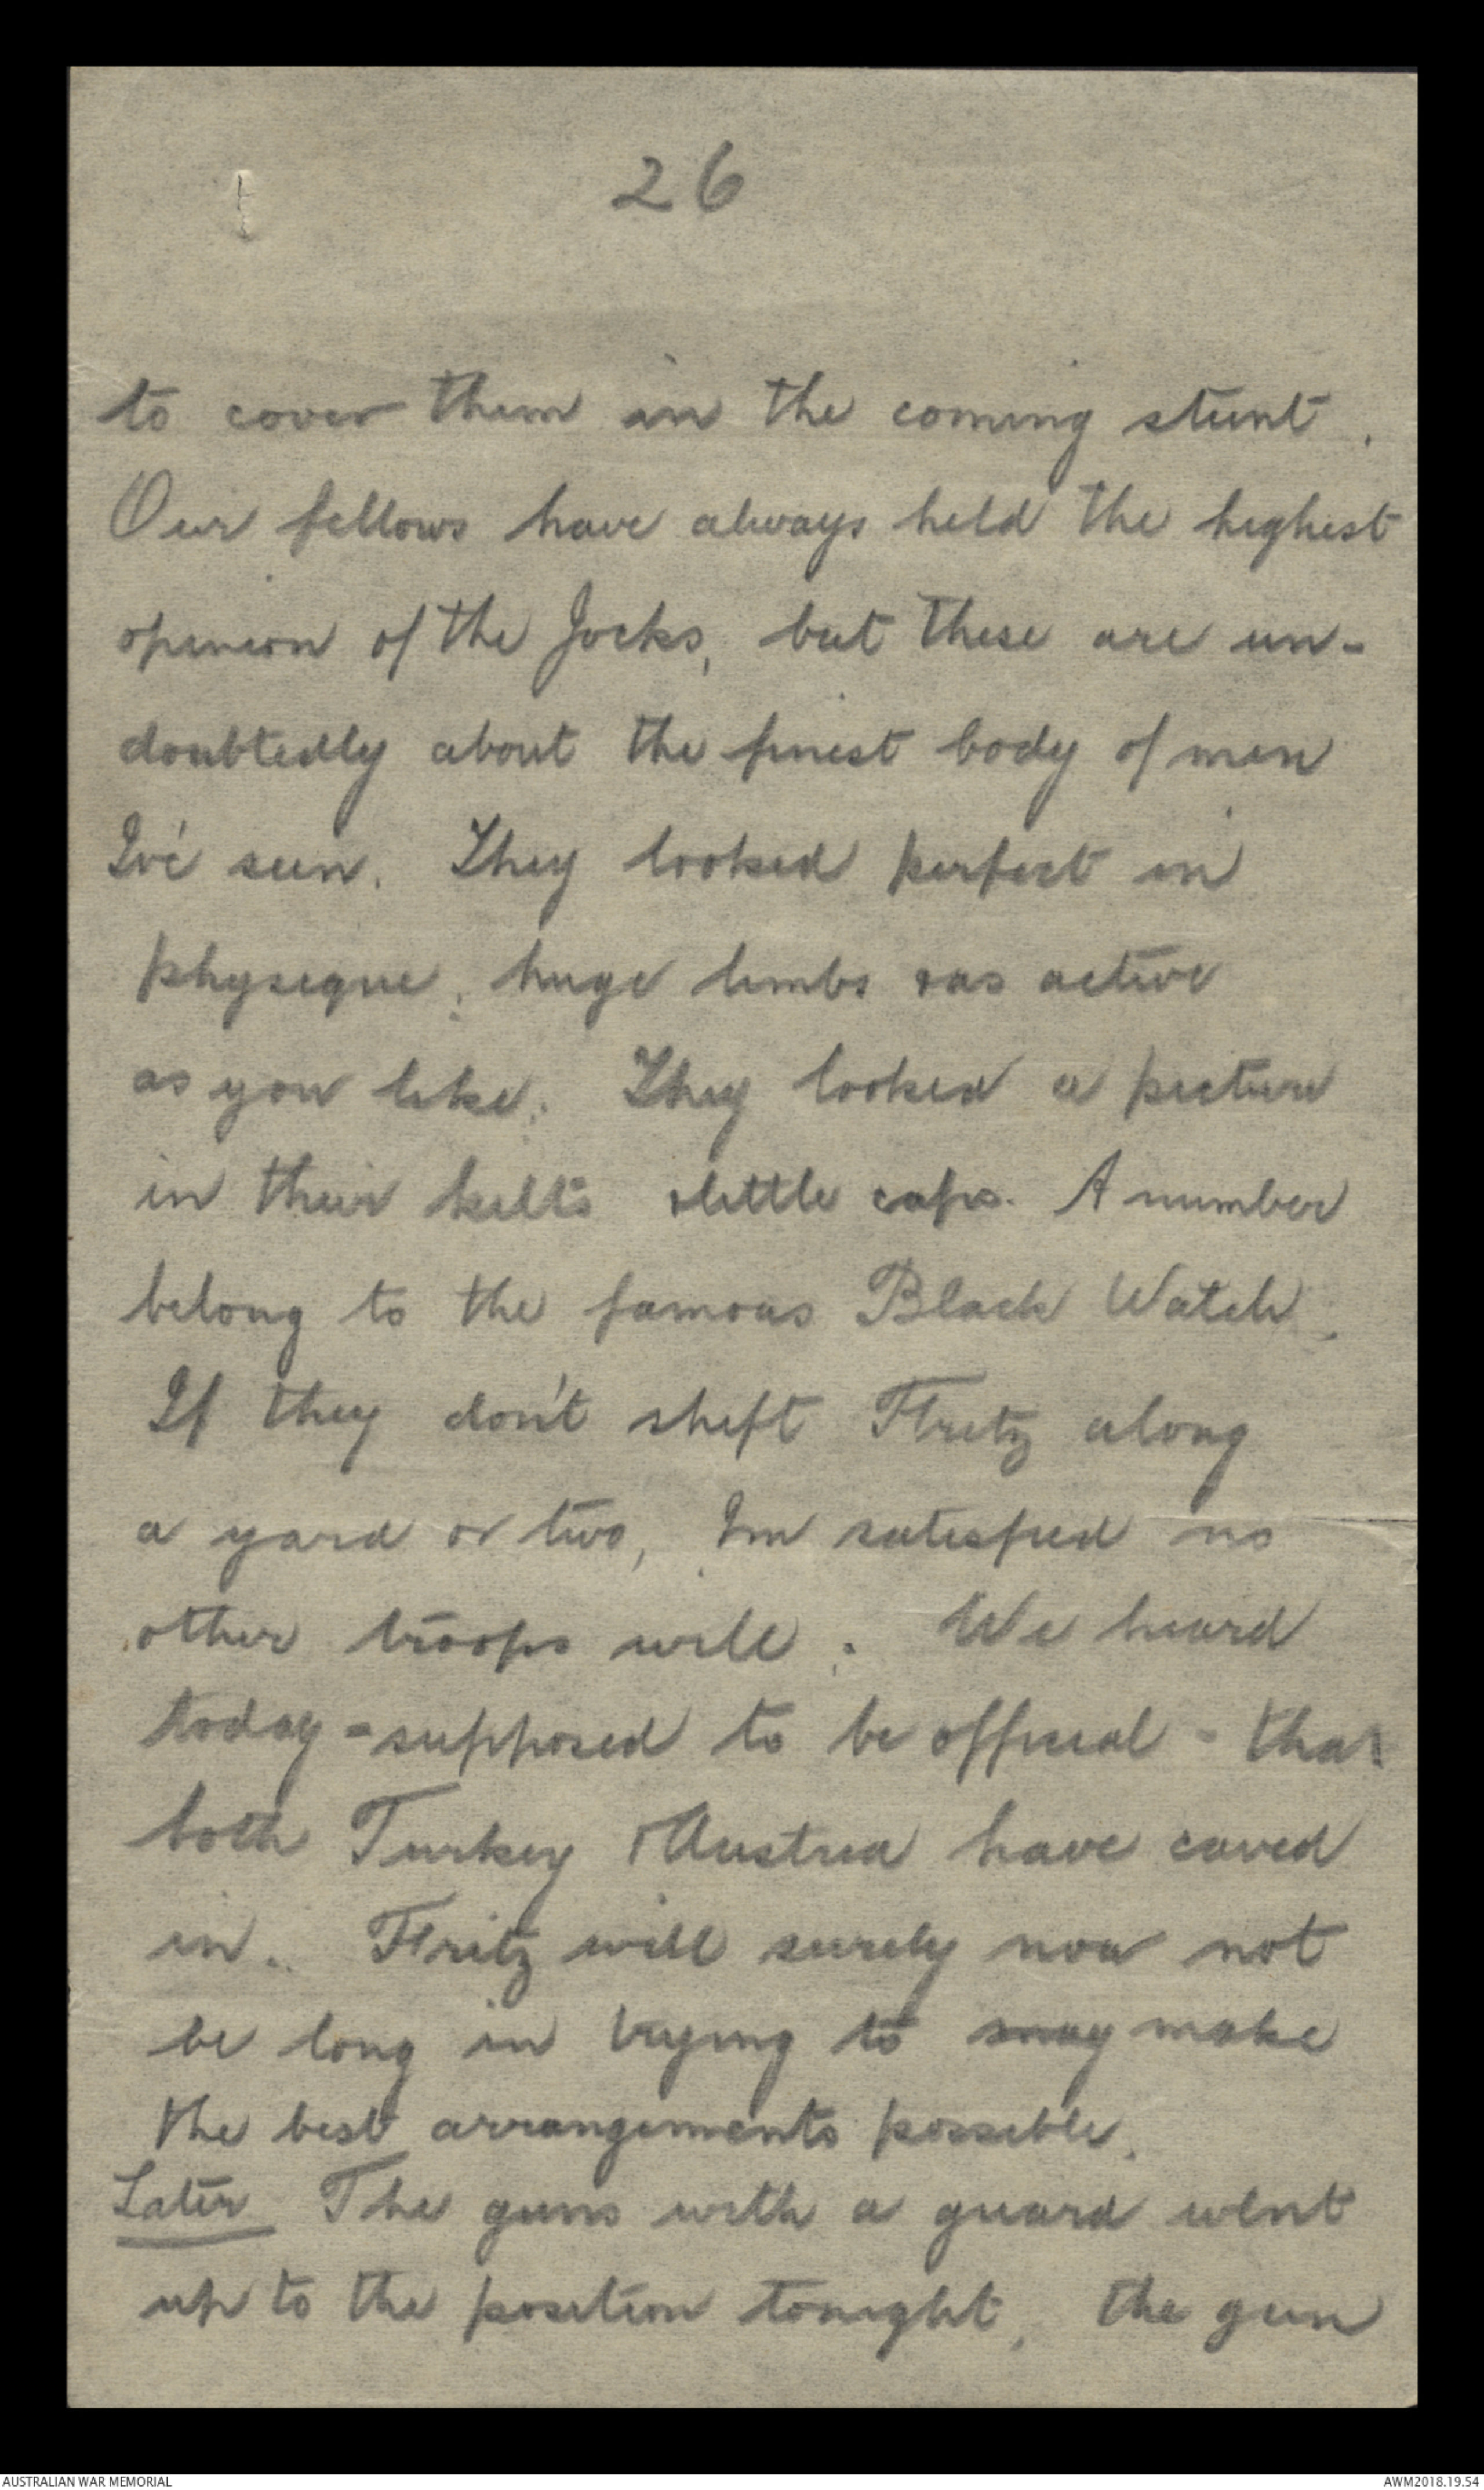 26
to cover them in the coming stunt.
Our fellows have always held the highest
opinion of the Jocks, but these are un-
doubtedly about the finest body of men
I've seen. They looked perfect in
physique, huge limbs & as active
as you like. They looked a picture
in their kilts & little caps. A number
belong to the famous Black Watch.
If they don't shift Fritz along
a yard or two, I'm satisfied no
other troops will. We heard
today - supposed to be official - that
both Turkey & Austria have caved
in. Fritz will surely now not
be long in trying to make
the best arrangements possible.
Later The guns with a guard went
up to the position tonight, the gun
AUSTRALIAN WAR MEMORIAL
AWM2018.19.54